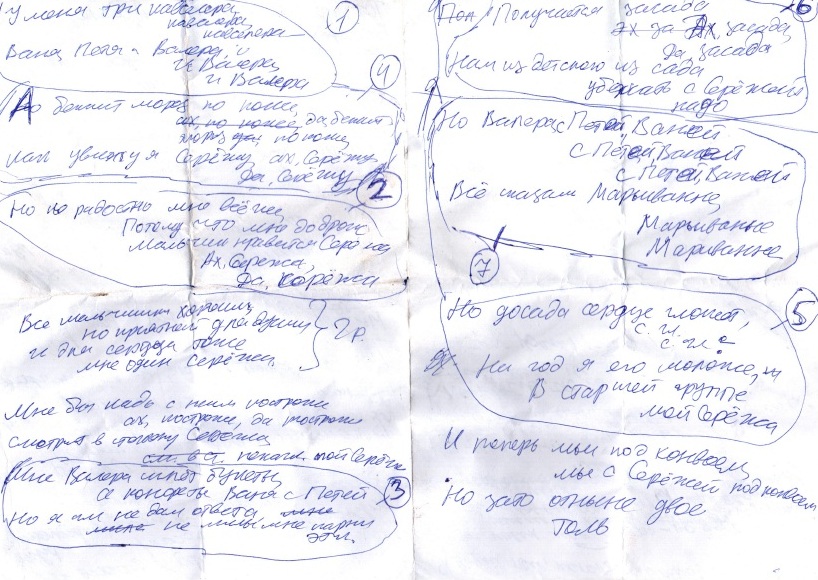 У меня три кавалера
кавалера
кавалера
1
Ваня, Петя и Валера
и Валера
и Валера
4
А бежит мороз по коже,
ах, по коже, да, бежит
мороз да, по коже,
как увижу я Серёжу, ах, Серёжу
да, Серёжу
2
Но не радостно мне всё же,
Потому что мне дороже
мальчик нравится Серёжа,
Ах, Серёжа,
да, Серёжа
Все мальчишки хороши,
но приятней для души
и для сердца тоже
мне один Серёжа.
2 р.
Мне бы надо с ним построже
ах, построже, да построже
смотрит в сторону Серёжа
см. в ст. мой Серёжа
Мне Валера шлёт букеты,
а конфеты Ваня с Петей
3
Но я им не дам ответа,
не милы мне парни
эти.
6
Получается засада
эх за Ах, засада,
да, засада
Нам из детского из сада
убежать с Серёжей
надо
Но Валера с Петей, Ваней
с Петей, Ваней
с Петей, Ваней
Всё сказали Марьиванне,
Марьиванне
Мариванне
7
Но досада сердце гложет,
с. г.
с. г.
5
На год я его моложе,
В старшей группе
мой Серёжа
И теперь мы под конвоем,
мы с Серёжей под конвоем
Но зато отныне двое